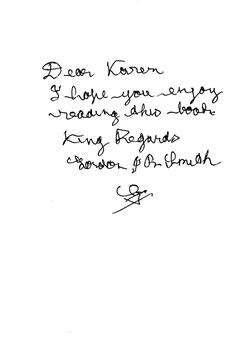 Dear Karen
I hope you enjoy
reading this book.
King Regards
Gordon J B Smith